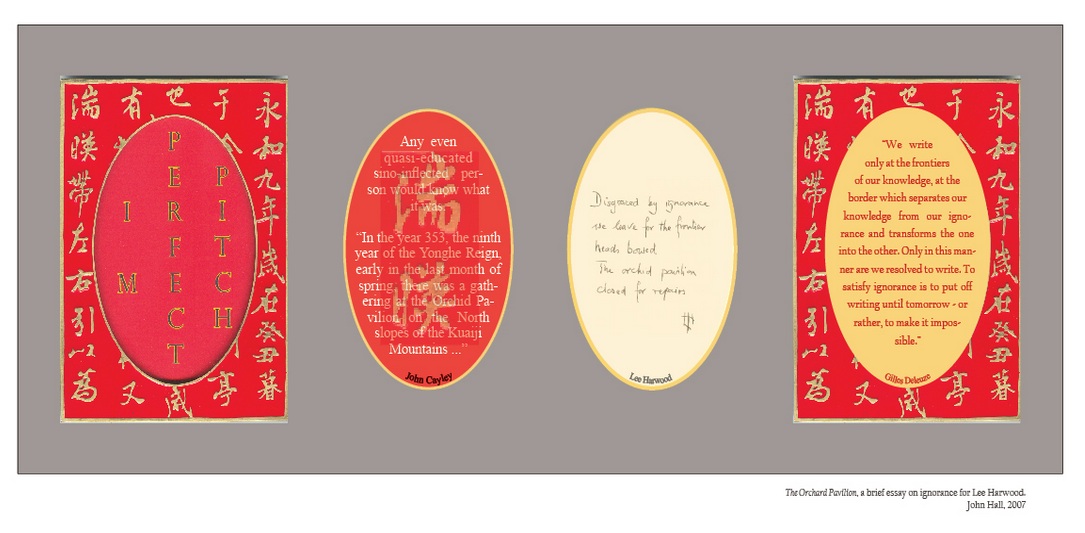 永和九年歲在癸丑暮
于
亭
也
咸
有
又
湍暎帶左右引以為
IM
PERFECT
PITCH
Any even
quasi-educated
sino-inflected per-
son would know what
it was.
"In the year 353, the ninth
year of the Yonghe Reign,
early in the last month of
spring, there was a gath-
ering at the Orchid Pa-
vilion, on the North
slopes of the Kuaiji
Mountains ..."
湍暎
John Cayley
Disgraced by ignorance
we leave for the frontier
heads bowed
The orchid pavilion
closed for repairs
Lee Harwood
永和九年歲在癸丑暮
于
亭
也
咸
有
又
湍暎帶左右引以為
"We write
only at the frontiers
of our knowledge, at the
border which separates our
knowledge from our igno-
rance and transforms the one
into the other. Only in this man-
ner are we resolved to write. To
satisfy ignorance is to put off
writing until tomorrow - or
rather, to make it impos-
sible."
Gilles Deleuze
The Orchard Pavilion, a brief essay on ignorance for Lee Harwood.
John Hall, 2007